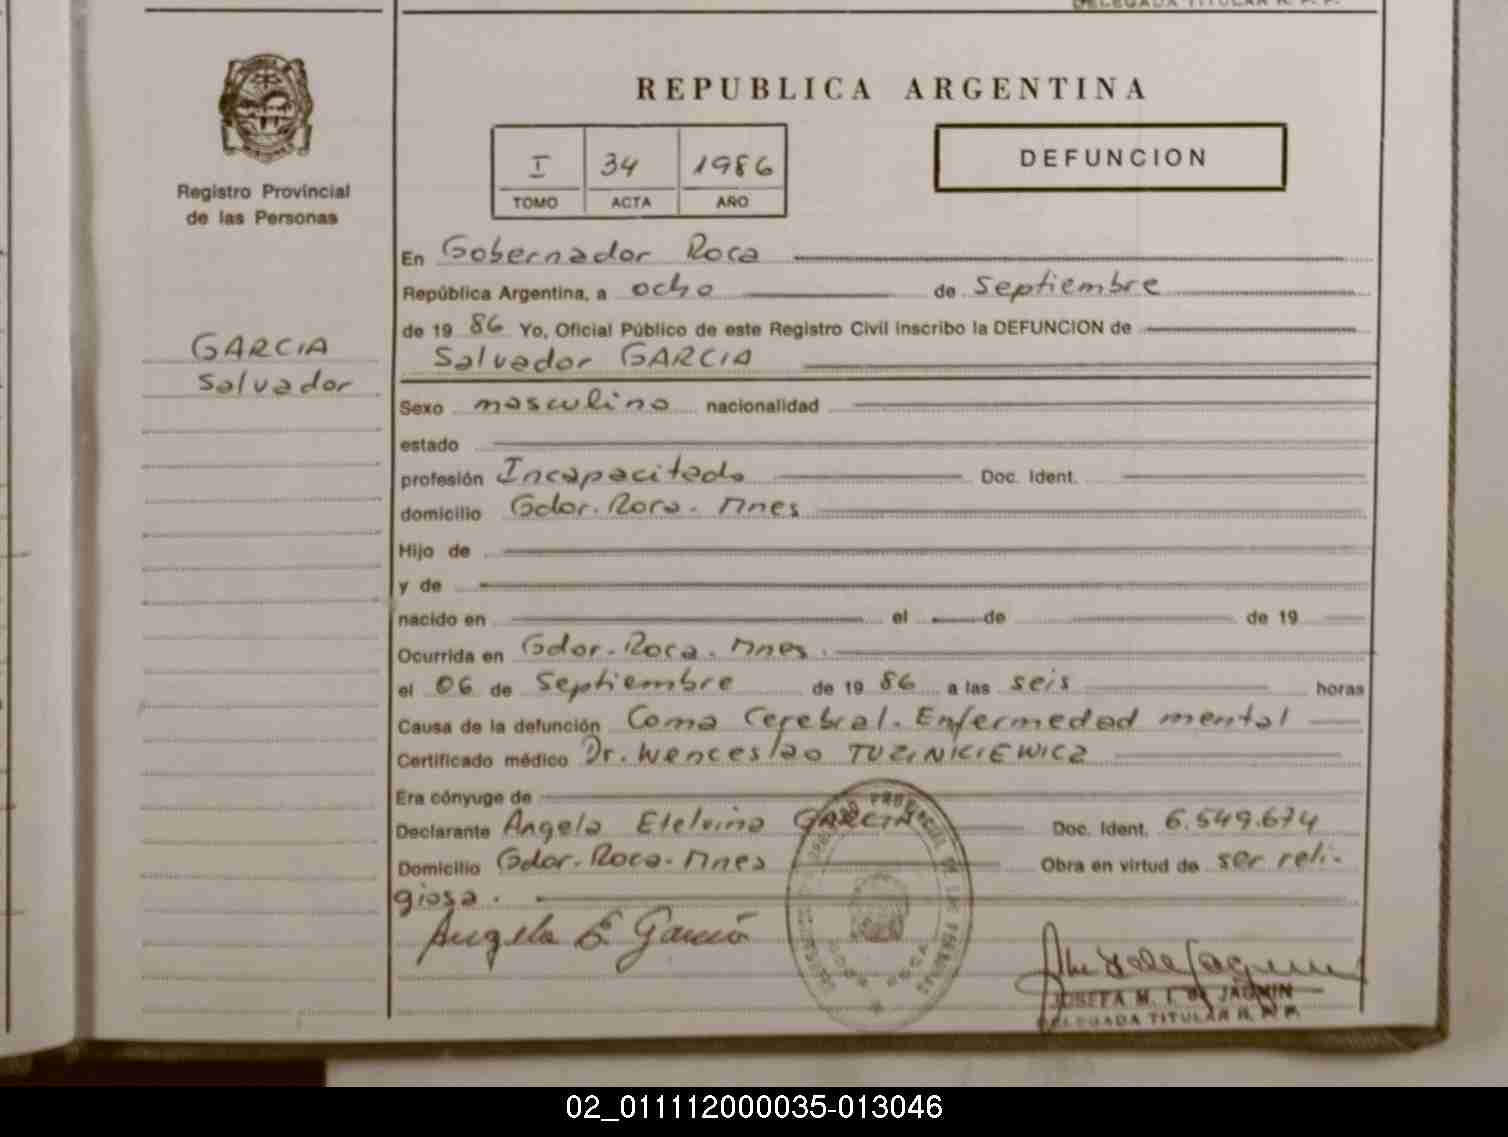 DELEGADA TITULAR R. P. P.
REPUBLICA ARGENTINA
I 34 1986
TOMO ACTA AÑO
DEFUNCION
Registro Provincial
de las Personas
GARCIA
Salvador
En Gobernador Roca
República Argentina, a ocho de Septiembre
de 19 86 Yo, Oficial Público de este Registro Civil inscribo la DEFUNCION de
Salvador GARCIA
Sexo masculino nacionalidad
estado
profesión Incapacitado Doc. Ident.
domicilio Gdor. Roca. Mnes
Hijo de
y de
nacido en el de de 19
Ocurrida en Gdor. Roca. Mnes.
el 06 de Septiembre de 19 86 a las seis horas
Causa de la defunción Coma Cerebral. Enfermedad mental
Certificado médico Dr. Wenceslao TUZINKIEWICZ
Era cónyuge de
Declarante Angela Etelvina GARCIA Doc. Ident. 6.549.674
Domicilio Gdor. Roca. Mnes Obra en virtud de ser reli-
giosa.
Angela E García
JOSEFA M. I. DE JAQMIN
DELEGADA TITULAR R. P. P.
02_011112000035-013046